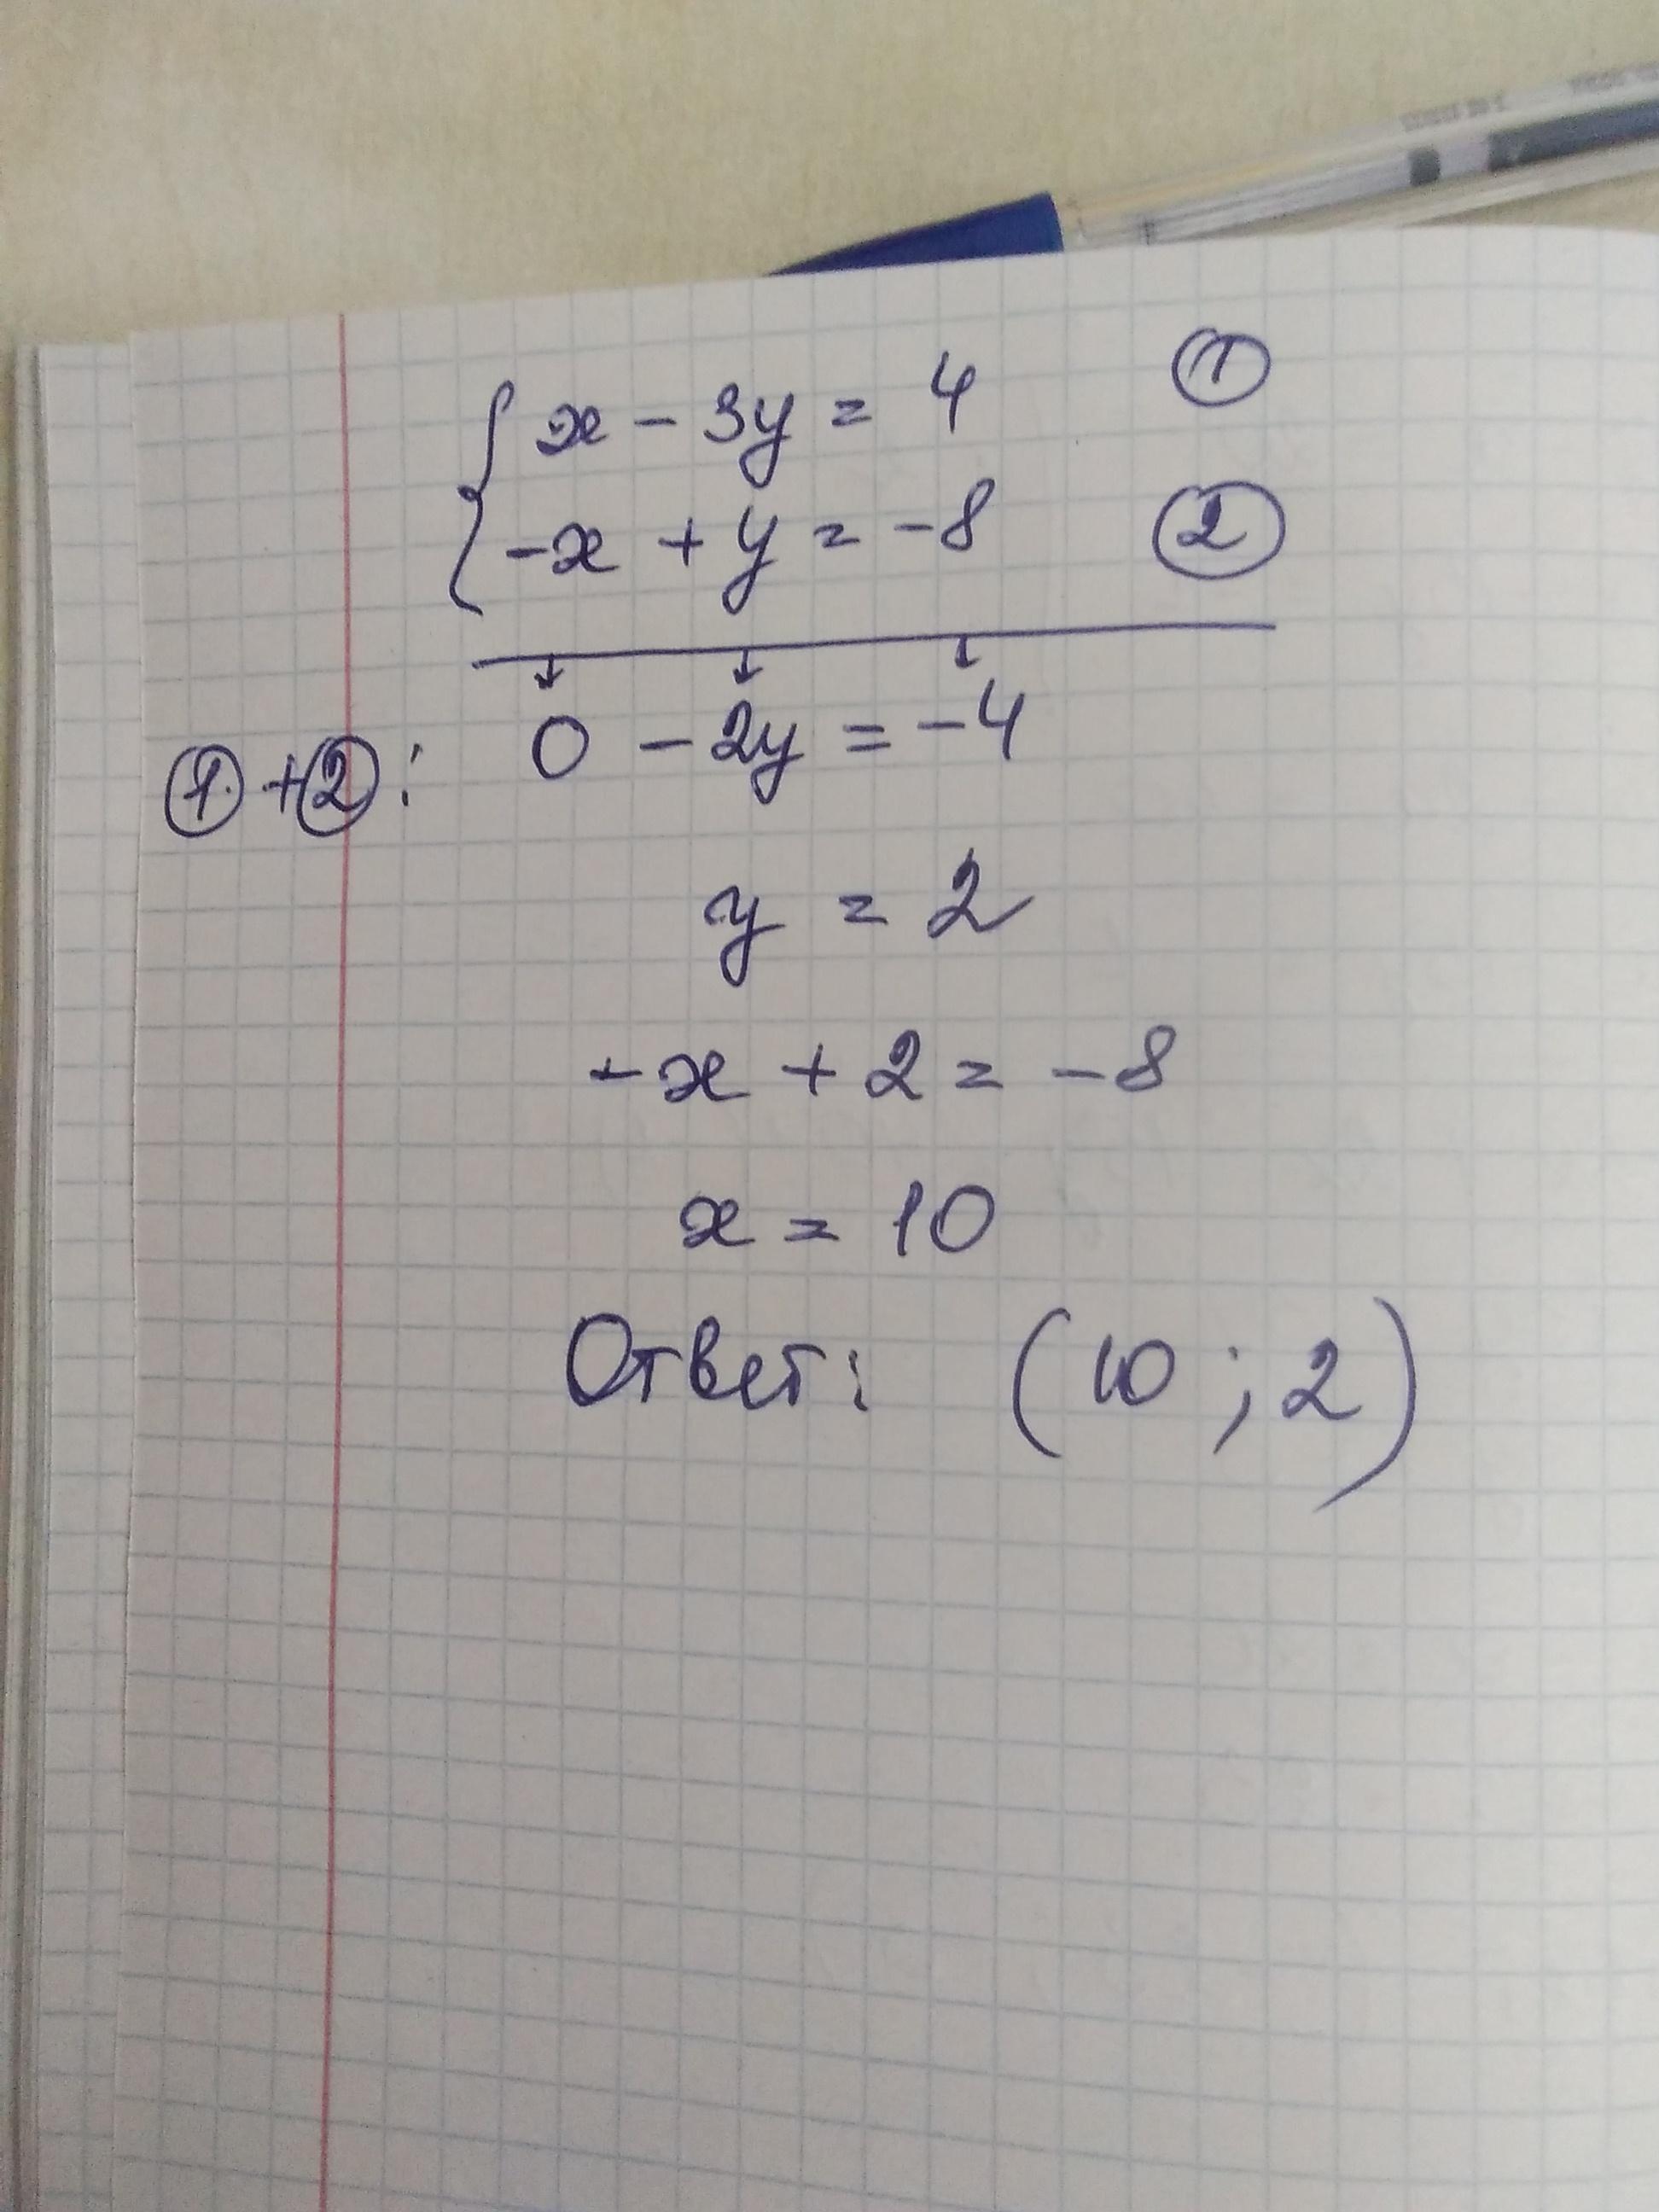 x - 3y = 4 ①
-x + y = -8 ②
①+②: 0 - 2y = -4
y = 2
-x + 2 = -8
x = 10
Ответ: (10 ; 2)